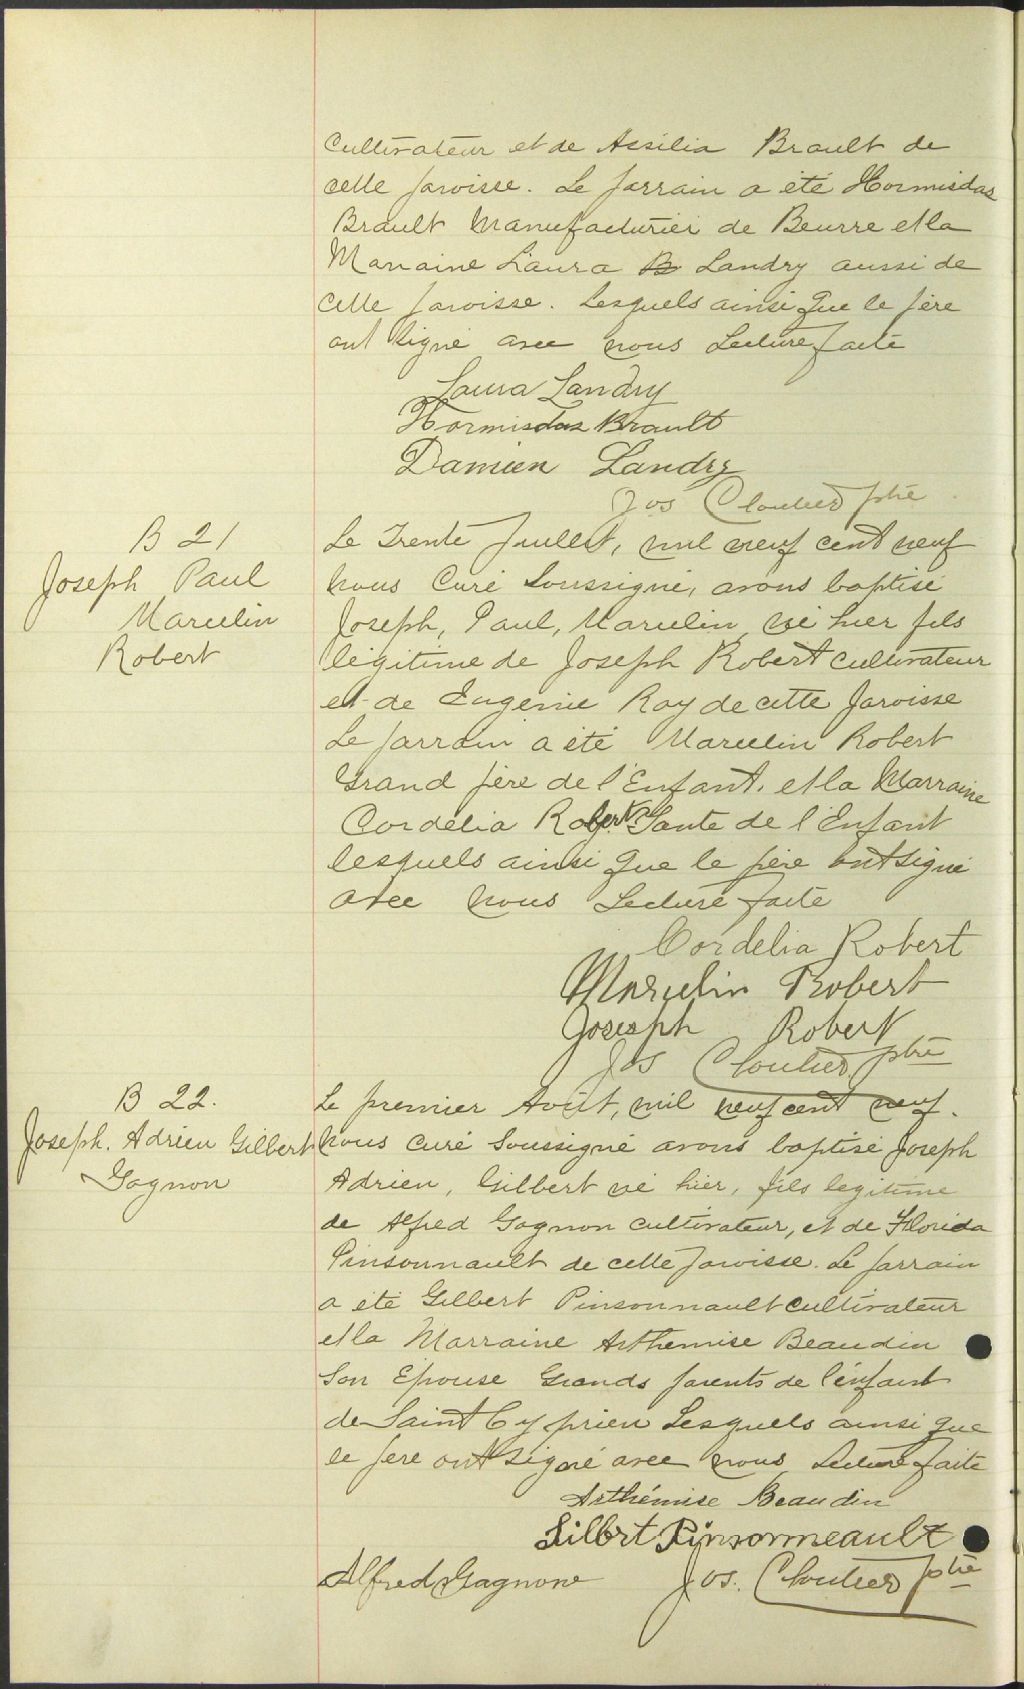 cultivateur et de Assilia Brault de
cette paroisse. Le parrain a été Hormisdas
Brault Manufacturier de Beurre et la
Marraine Laura B Landry aussi de
cette paroisse. Lesquels ainsi que le père
ont signé avec nous Lecture faite
Laura Landry
Hormisdas Brault
Damien Landry
Jos Cloutier ptre
B 21
Joseph Paul
Marcelin
Robert
Le Trente Juillet, mil neuf cent neuf
Nous Curé Soussigné, avons baptisé
Joseph, Paul, Marcelin, né hier fils
légitime de Joseph Robert cultivateur
et de Eugenie Roy de cette paroisse
Le parrain a été Marcelin Robert
Grand père de l'Enfant, et la Marraine
Cordelia Robert Tante de l'Enfant
lesquels ainsi que le père ont signé
avec nous Lecture faite
Cordelia Robert
Marcelin Robert
Joseph Robert
Jos Cloutier ptre
B 22.
Joseph. Adrien Gilbert
Gagnon
Le premier Août, mil neuf cent neuf.
Nous curé Soussigné avons baptisé Joseph
Adrien, Gilbert né hier, fils légitime
de Alfred Gagnon cultivateur, et de Florida
Pinsonnault de cette paroisse. Le parrain
a été Gilbert Pinsonnault cultivateur
et la Marraine Arthemise Beaudin
Son Epouse Grands parents de l'enfant
de Saint Cyprien Lesquels ainsi que
le père ont signé avec nous Lecture faite
Arthémise Beaudin
Gilbert Pinsonneault
Alfred Gagnon
Jos. Cloutier ptre